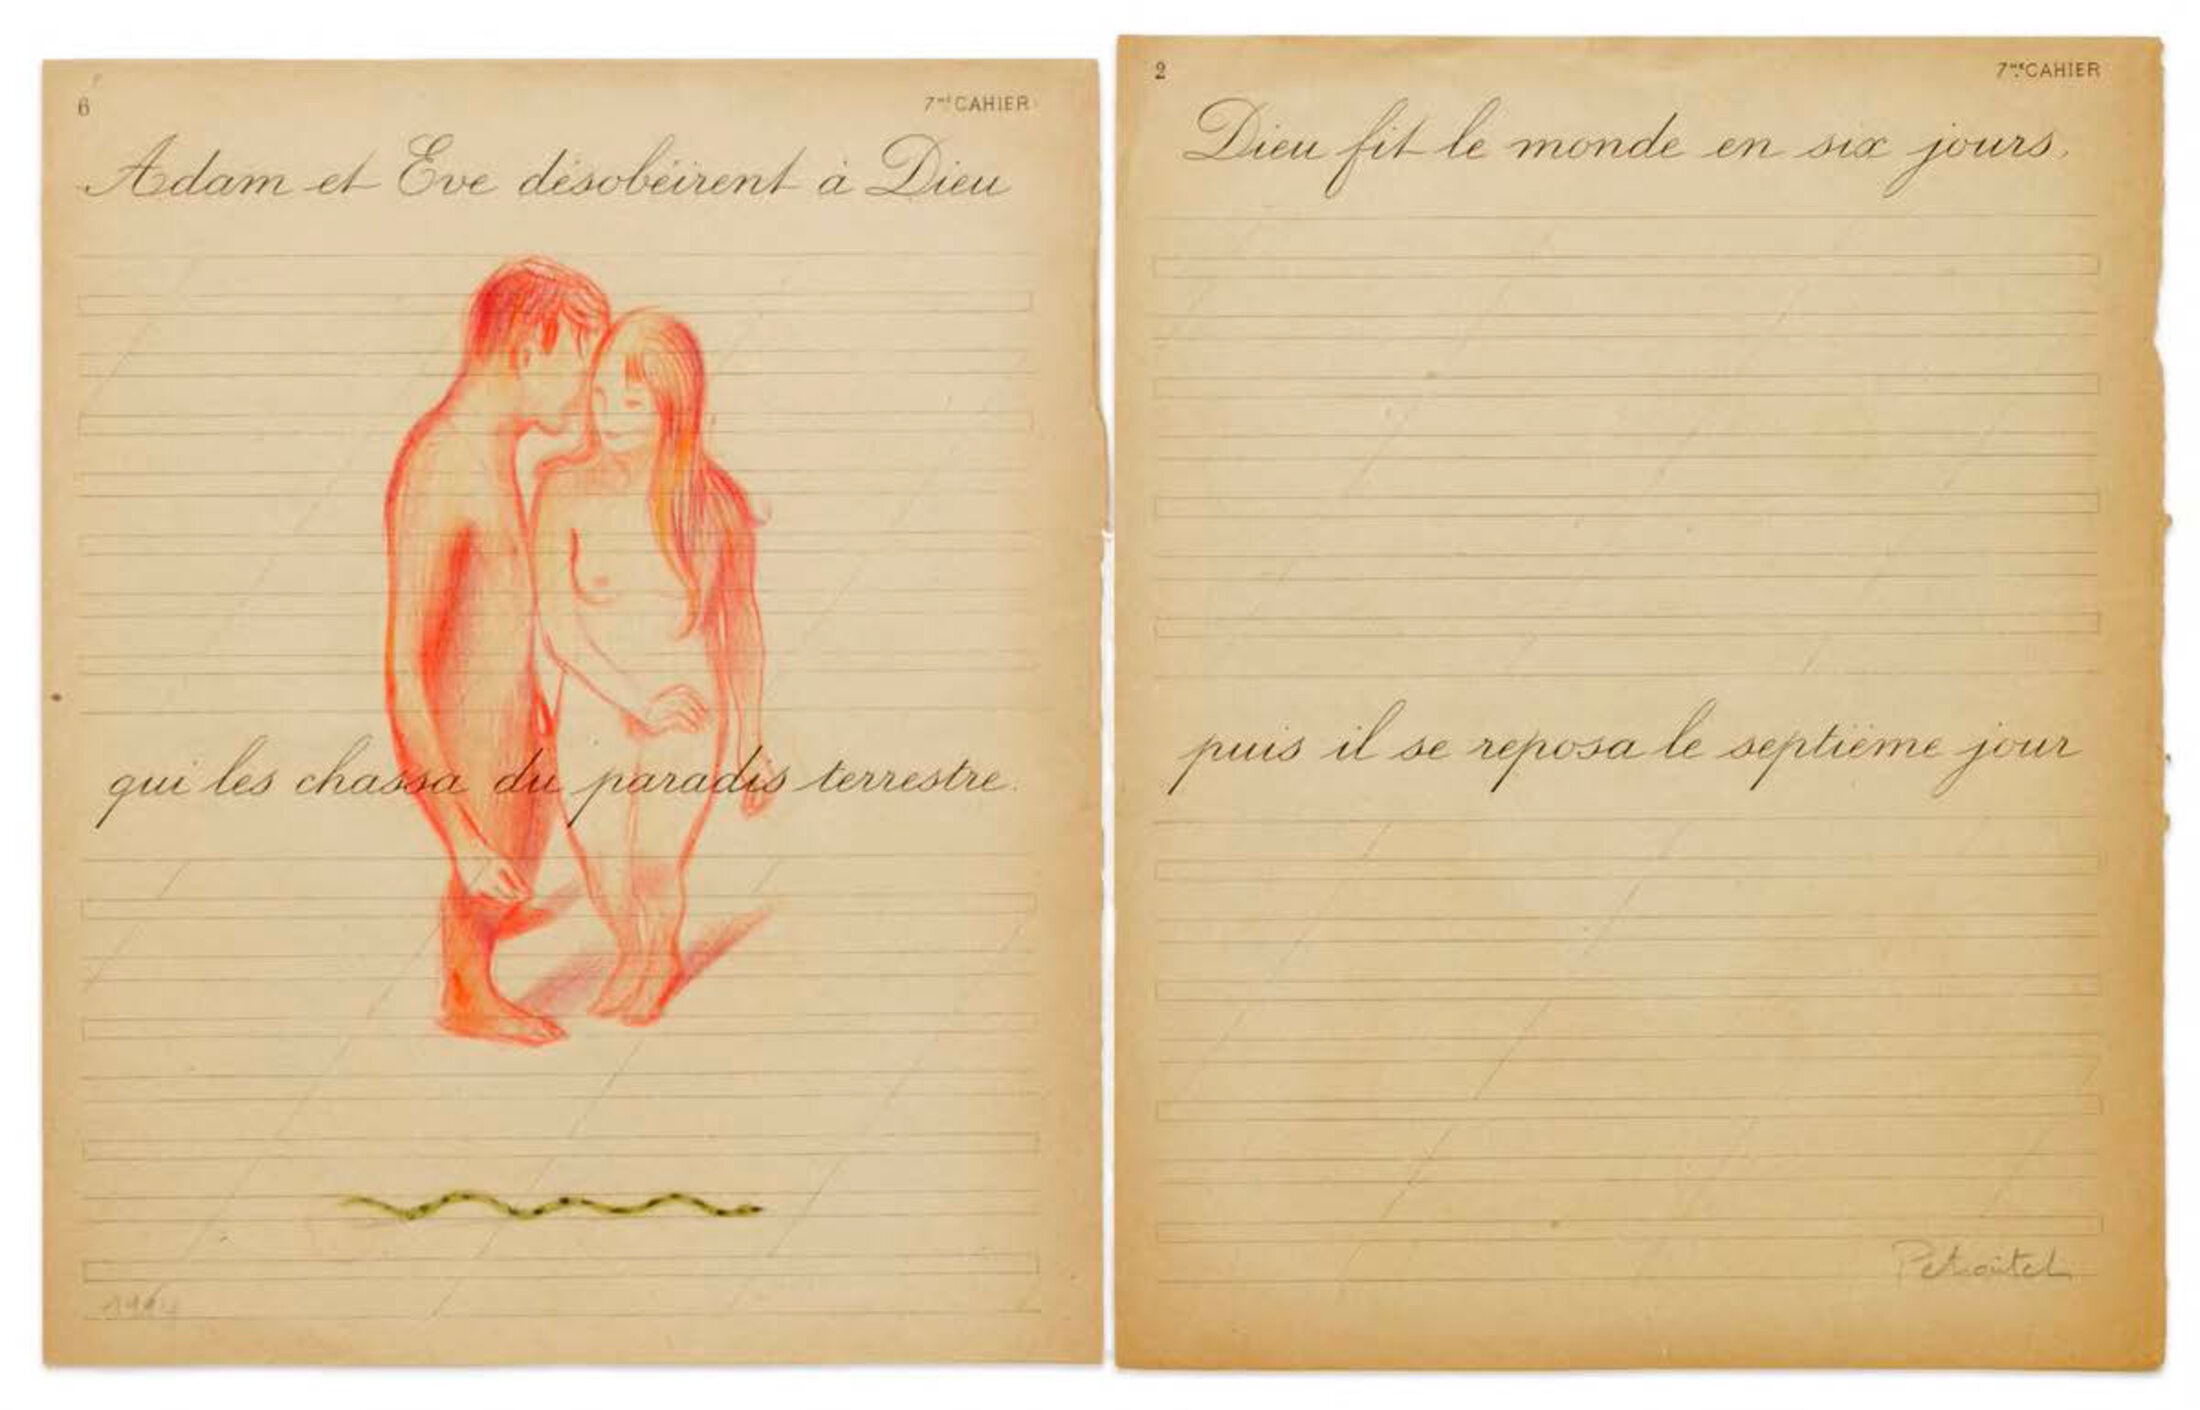 6
7me CAHIER
Adam et Eve désobéirent à Dieu
qui les chassa du paradis terrestre.
2
7me CAHIER
Dieu fit le monde en six jours,
puis il se reposa le septième jour